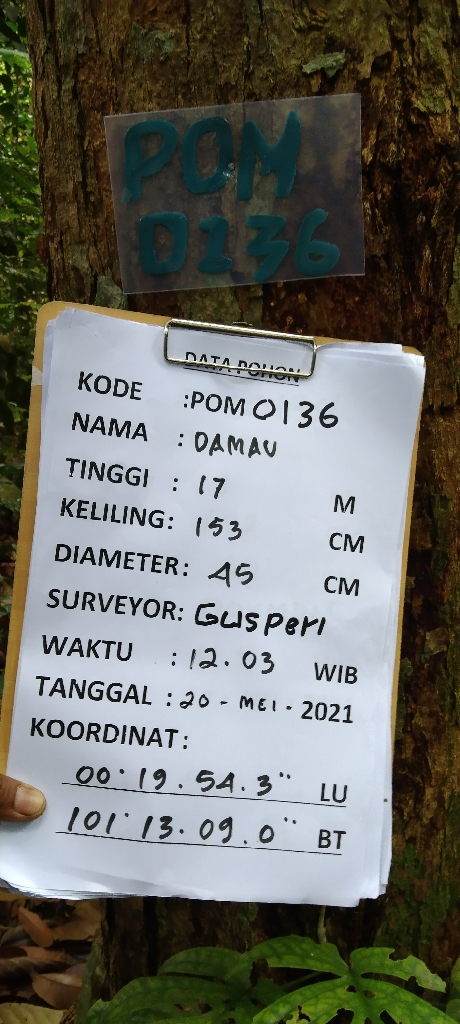 POM
0136
DATA POHON
KODE :POM 0136
NAMA : DAMAU
TINGGI : 17 M
KELILING: 153 CM
DIAMETER: 45 CM
SURVEYOR: Gusperi
WAKTU : 12.03 WIB
TANGGAL : 20 - MEI - 2021
KOORDINAT:
00° 19. 54. 3" LU
101° 13. 09. 0" BT